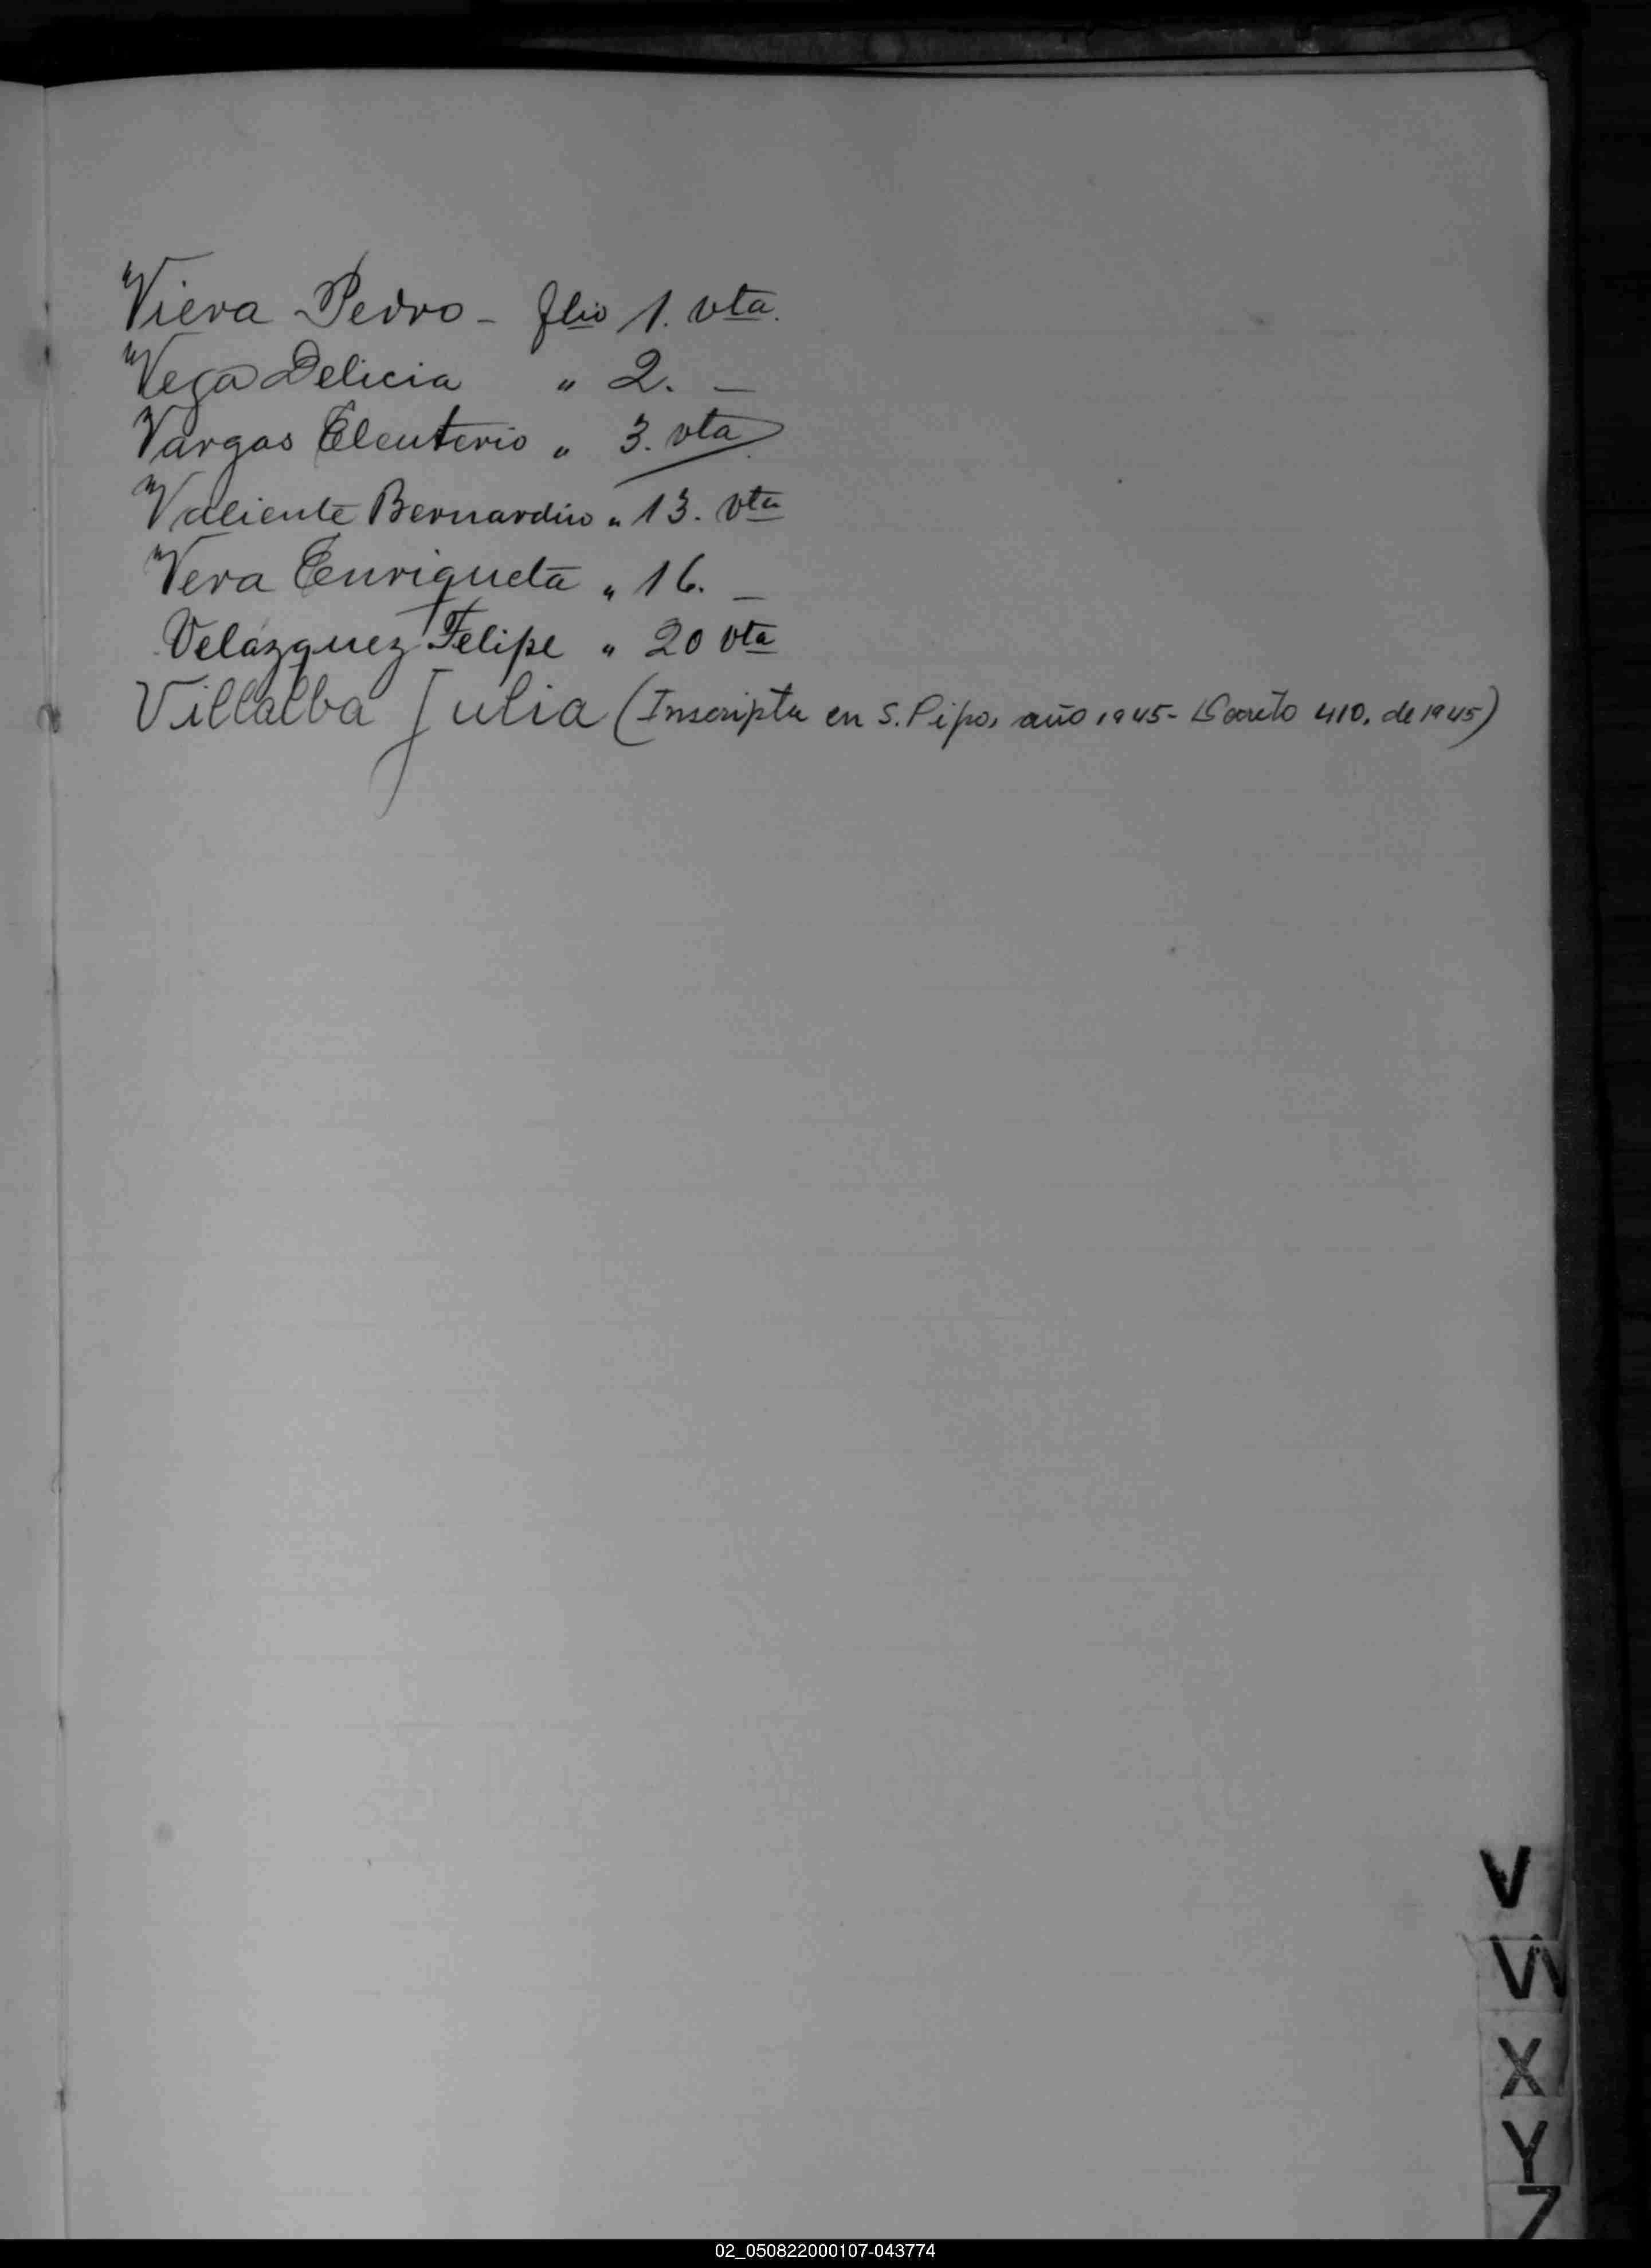 Viera Pedro - flio 1. vta.
Vega Delicia " 2. —
Vargas Eleuterio " 3. vta
Valiente Bernardino " 13. vta
Vera Enriqueta " 16. —
Velázquez Felipe " 20 vta
Villalba Julia (Inscripta en S. Pipo, año 1945 - Decreto 410, de 1945)
V
W
X
Y
Z
02_050822000107-043774